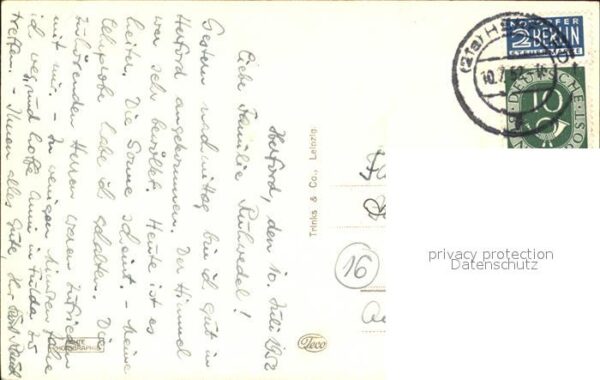 Herford, den 10. Juli 1952
Liebe Familie Ruhwedel!
Gestern nachmittag bin ich gut in
Herford angekommen. Der Himmel
war sehr bewölkt. Heute ist es
heiter. Die Sonne scheint. - Meine
Lehrprobe habe ich gehalten. Die
zuhörenden Herren waren zufrieden
mit mir. - In wenigen Minuten fahre
ich weg und hoffe Anni in Fulda zu
treffen. - Ihnen alles Gute, Ihr
Trinks & Co., Leipzig.
ECHTE
PHOTOGRAPHIE
Teco
16
NOTOPFER
2 BERLIN
STEUERMARKE
(21a) HERFORD
10.7.52
DEUTSCHE POST
10
privacy protection
Datenschutz